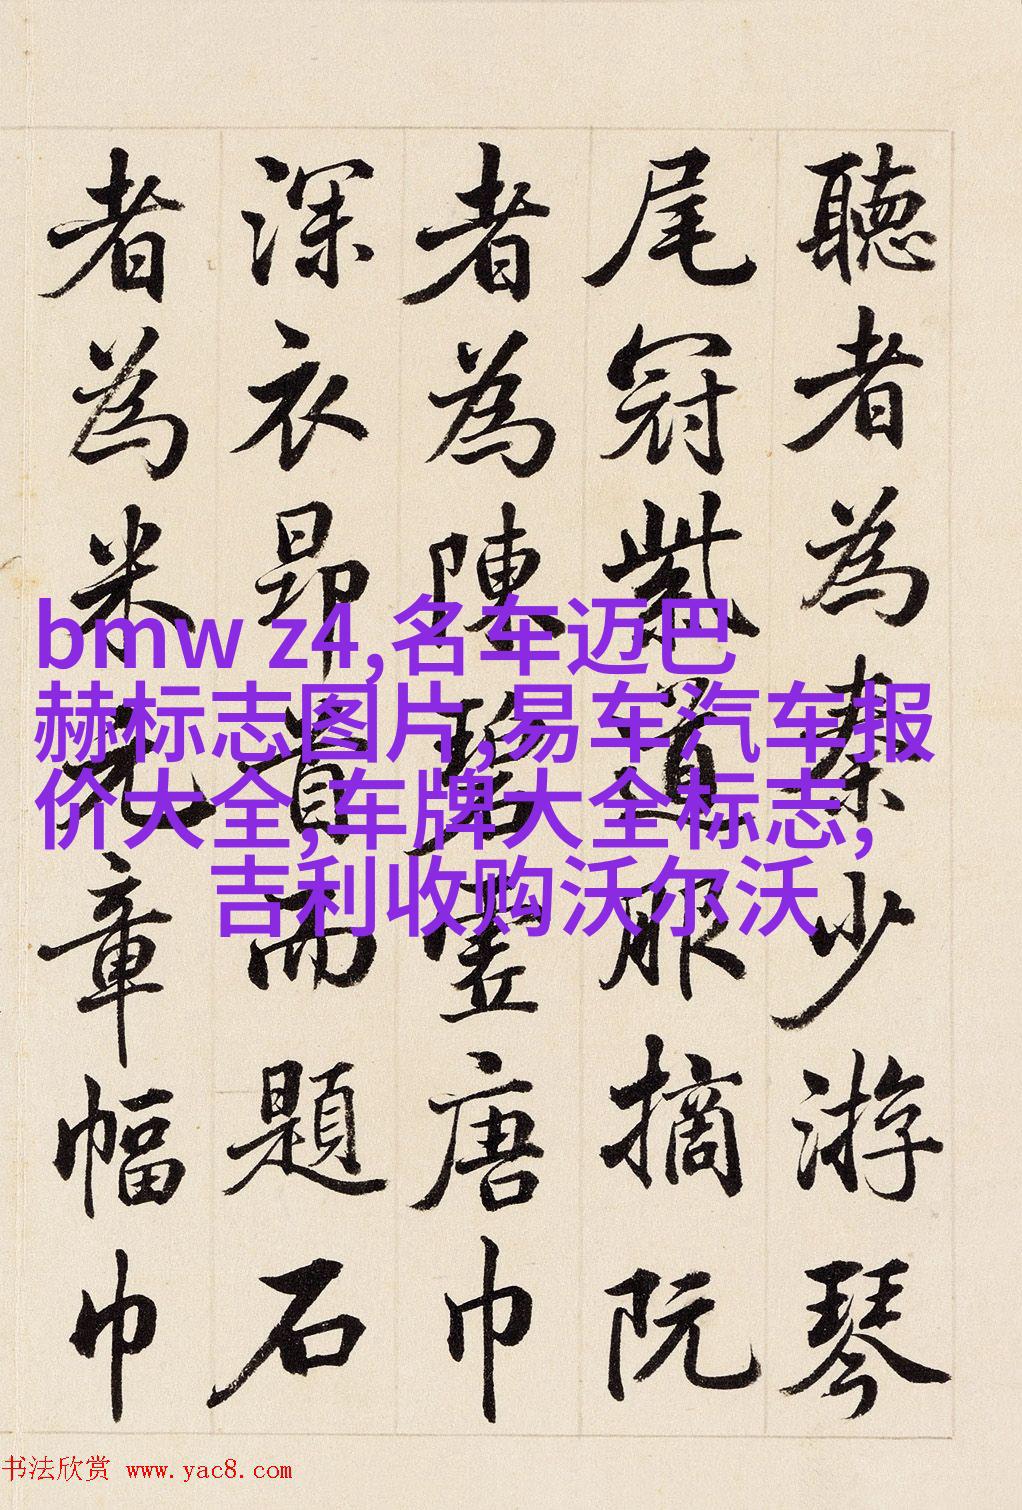 聽者為秦少游琴
尾冠紫道服摘阮
者為陳碧虛唐巾
深衣昂首而題石
者為米元章幅巾
bmw z4,名车迈巴
赫标志图片,易车汽车报
价大全,车牌大全标志,
吉利收购沃尔沃
书法欣赏 www.yac8.com